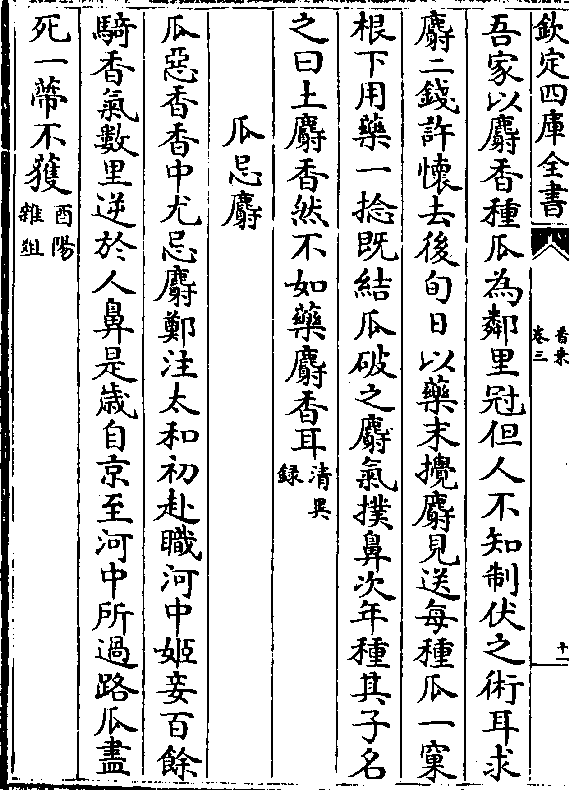 欽定四庫全書
香乗
卷三
十一
吾家以麝香種瓜為鄰里冠但人不知制伏之術耳求
麝二錢許懷去後旬日以藥末攪麝見送每種瓜一窠
根下用藥一捻既結瓜破之麝氣撲鼻次年種其子名
之曰土麝香然不如藥麝香耳清異
録
瓜忌麝
瓜惡香香中尤忌麝鄭注太和初赴職河中姬妾百餘
騎香氣數里逆於人鼻是歳自京至河中所過路瓜盡
死一蔕不獲酉陽
雜俎